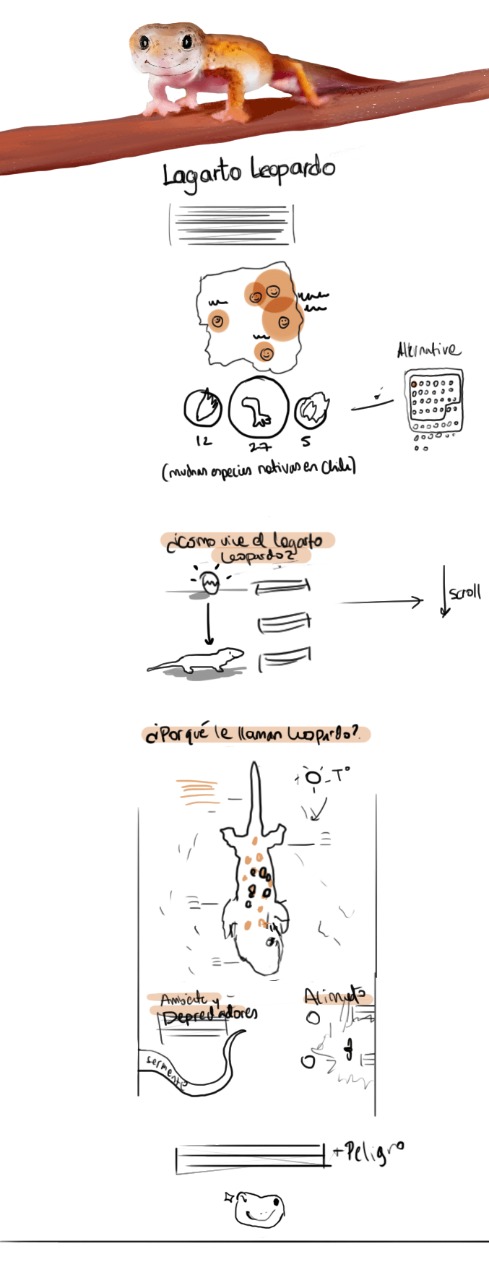 Lagarto Leopardo
Alternative
12
27
5
(muchas especies nativas en Chile)
¿Como vive el lagarto
Leopardo?
scroll
¿Por qué le llaman Leopardo?
+ - T°
Ambiente y
Depredadores
Alimento
serpiente
+Peligro